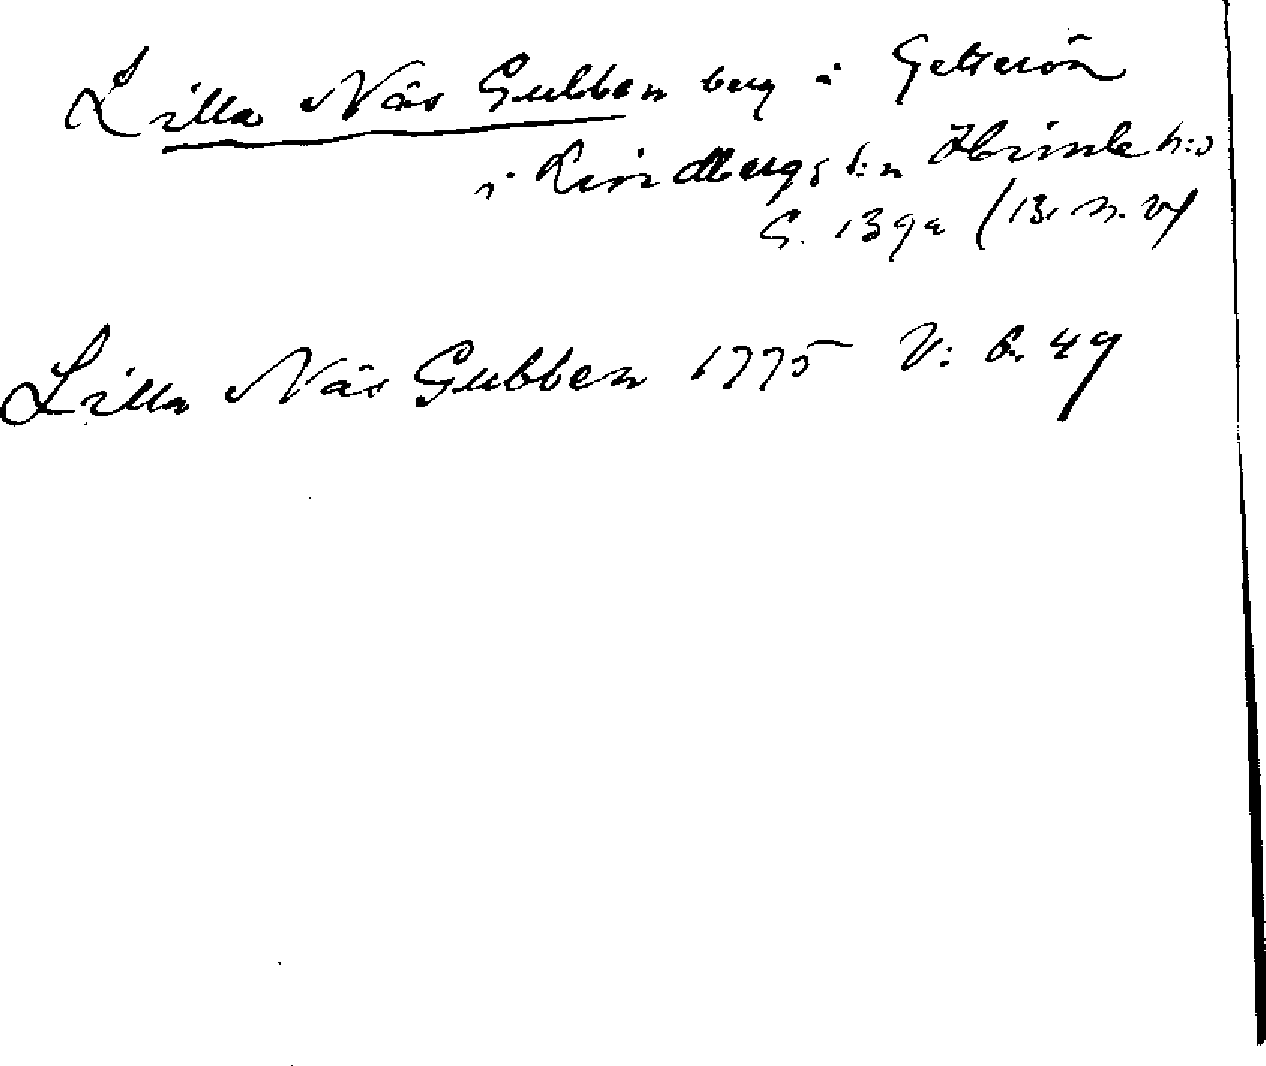 Lilla Näs Gubben berg i Getterön
i Lindbergs s:n Himle h:d
G. 139a (B. n. v)
Lilla Näs Gubben 1775 V: b. 49